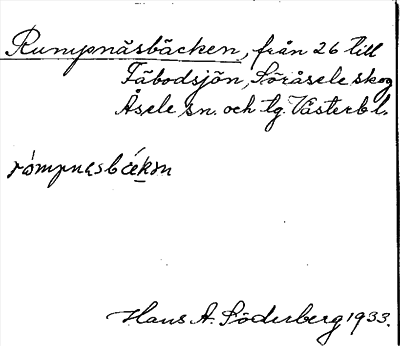 Rumpnäsbäcken, från 26 till
Fäbodsjön, Söråsele skog
Åsele sn. och tg. Västerb l.
rómpnɛsbǽkɘn
Hans A. Söderberg 1933.